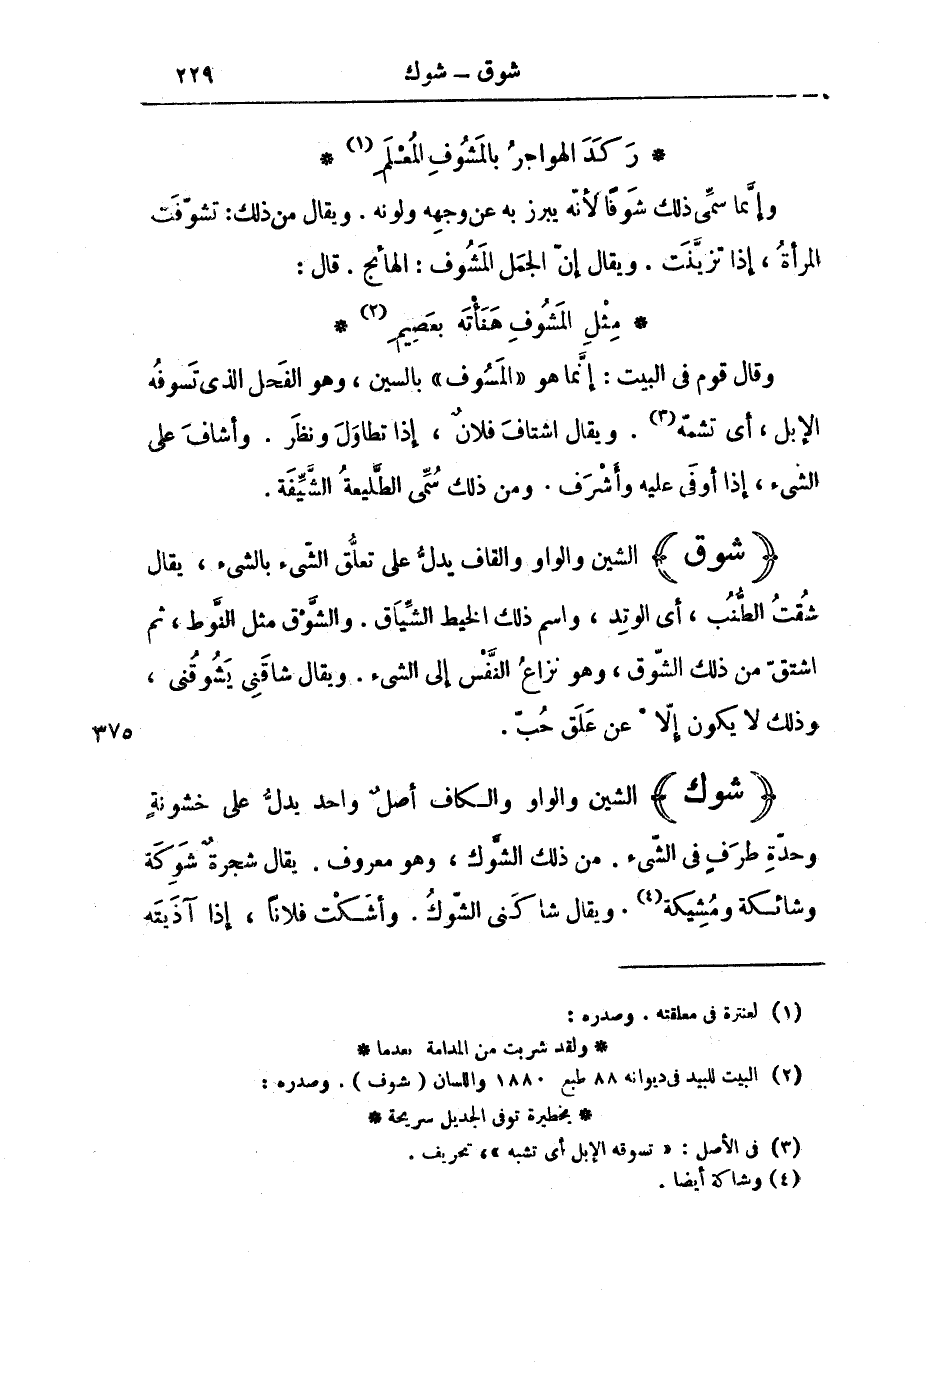 شوق – شوك ٢٢٩
* رَكَدَ الهواجرُ بالمَشُوفِ المُعْلَمِ (١) *
وإنَّما سمِّى ذلك شَوفًا لأنّه يبرز به عن وجهِه ولونه . ويقال من ذلك : تشوّفَت
المرأةُ ، إذا تزيَّنَت . ويقال إنّ الجمَل المَشُوف : الهائج . قال :
* مِثْلِ المَشُوفِ هَنَأْتَه بعَصِيمِ (٢) *
وقال قوم فى البيت : إنَّما هو « المَسُوف » بالسين ، وهو الفَحل الذى تَسوفُه
الإبل ، أى تشمّه (٣) . ويقال اشتافَ فلانٌ ، إذا تطاوَلَ ونظَر . وأشافَ على
الشىء ، إذا أوفَى عليه وأَشْرَف . ومن ذلك سُمِّى الطَّليعةُ الشَّيِّفَة .
﴿ شوق ﴾ الشين والواو والقاف يدلُّ على تعلُّق الشّىء بالشىء ، يقال
شُقتُ الطُّنُب ، أى الوتِد ، واسم ذلك الخيط الشِّيَاق . والشَّوْق مثل النَّوط ، ثم
اشتقّ من ذلك الشّوق ، وهو نزاعُ النَّفْس إلى الشىء . ويقال شاقَنِى يَشُوقُنى ،
وذلك لا يكون إلّا عن عَلَق حُبّ . ٣٧٥
﴿ شوك ﴾ الشين والواو والكاف أصلٌ واحد يدلُّ على خشونةٍ
وحدّةِ طرَفٍ فى الشّىء . من ذلك الشَّوك ، وهو معروف . يقال شجرةٌ شَوِكَة
وشائكة ومُشِيكة (٤) . ويقال شاكَنى الشّوكُ . وأشَكْت فلانًا ، إذا آذَيتَه
(١) لعنترة فى معلقته . وصدره :
* ولقد شربت من المدامة بعدما *
(٢) البيت للبيد فى ديوانه ٨٨ طبع ١٨٨٠ واللسان ( شوف ) . وصدره :
* بخطيرة توفى الجديل سريحة *
(٣) فى الأصل : « تسوقه الإبل أى تشبه » ، تحريف .
(٤) وشاكة أيضا .